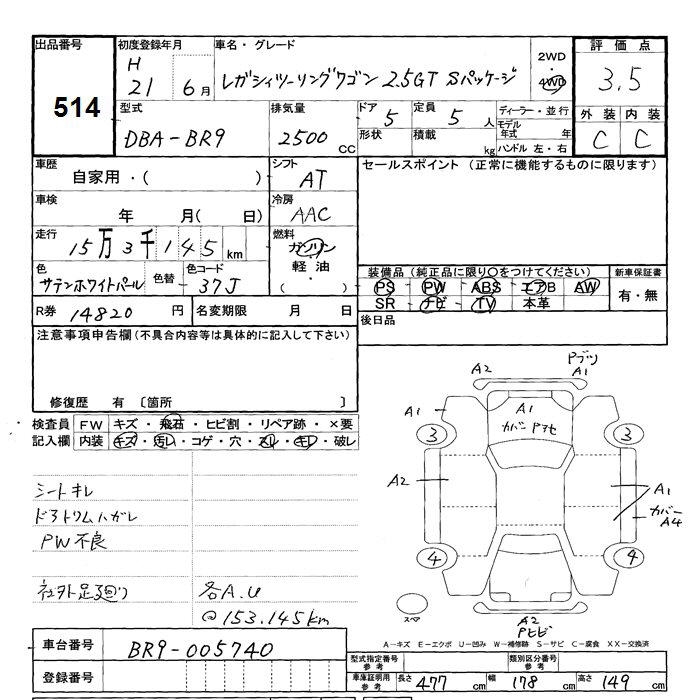 出品番号
514
初度登録年月
H
21 6月
車名・グレード
レガシィツーリングワゴン 2.5GT Sパッケージ
2WD
4WD
評価点
3.5
外装 内装
C C
型式
DBA-BR9
排気量
2500 CC
ドア 5
形状
定員 5 人
積載 kg
ディーラー・並行
モデル年式 年
ハンドル 左・右
車歴
自家用・( )
シフト
AT
セールスポイント (正常に機能するものに限ります)
車検
年 月( 日)
冷房
AAC
走行
15万3千145km
燃料
ガソリン
軽油・
( )
色
サテンホワイトパール
色替
色コード
37J
装備品 (純正品に限り〇をつけてください)
PS PW ABS エアB AW
SR ナビ TV 本革
新車保証書
有・無
R券 14820円
名変期限 月 日
後日品
注意事項申告欄(不具合内容等は具体的に記入して下さい)
修復歴 有 〔箇所 〕
検査員
記入欄
FW キズ・飛石・ヒビ割・リペア跡・×要
内装 キズ・汚レ・コゲ・穴・スレ・キレ・破レ
シートキレ
ドアトリムハガレ
PW不良
社外足廻り
各A.U
@153.145km
A2
Pブツ
A1
A1
A1
カバーPヲセ
3
3
A2
A1
カバー
A4
4
4
スペア
A2
Pヒビ
A-キズ E-エクボ U-凹み W-補修跡 S-サビ C-腐食 XX-交換済
車台番号 BR9-005740
登録番号
型式指定番号
参考
類別区分番号
参考
車庫証明用
参考
長さ 477 cm 幅 178 cm 高さ 149 cm